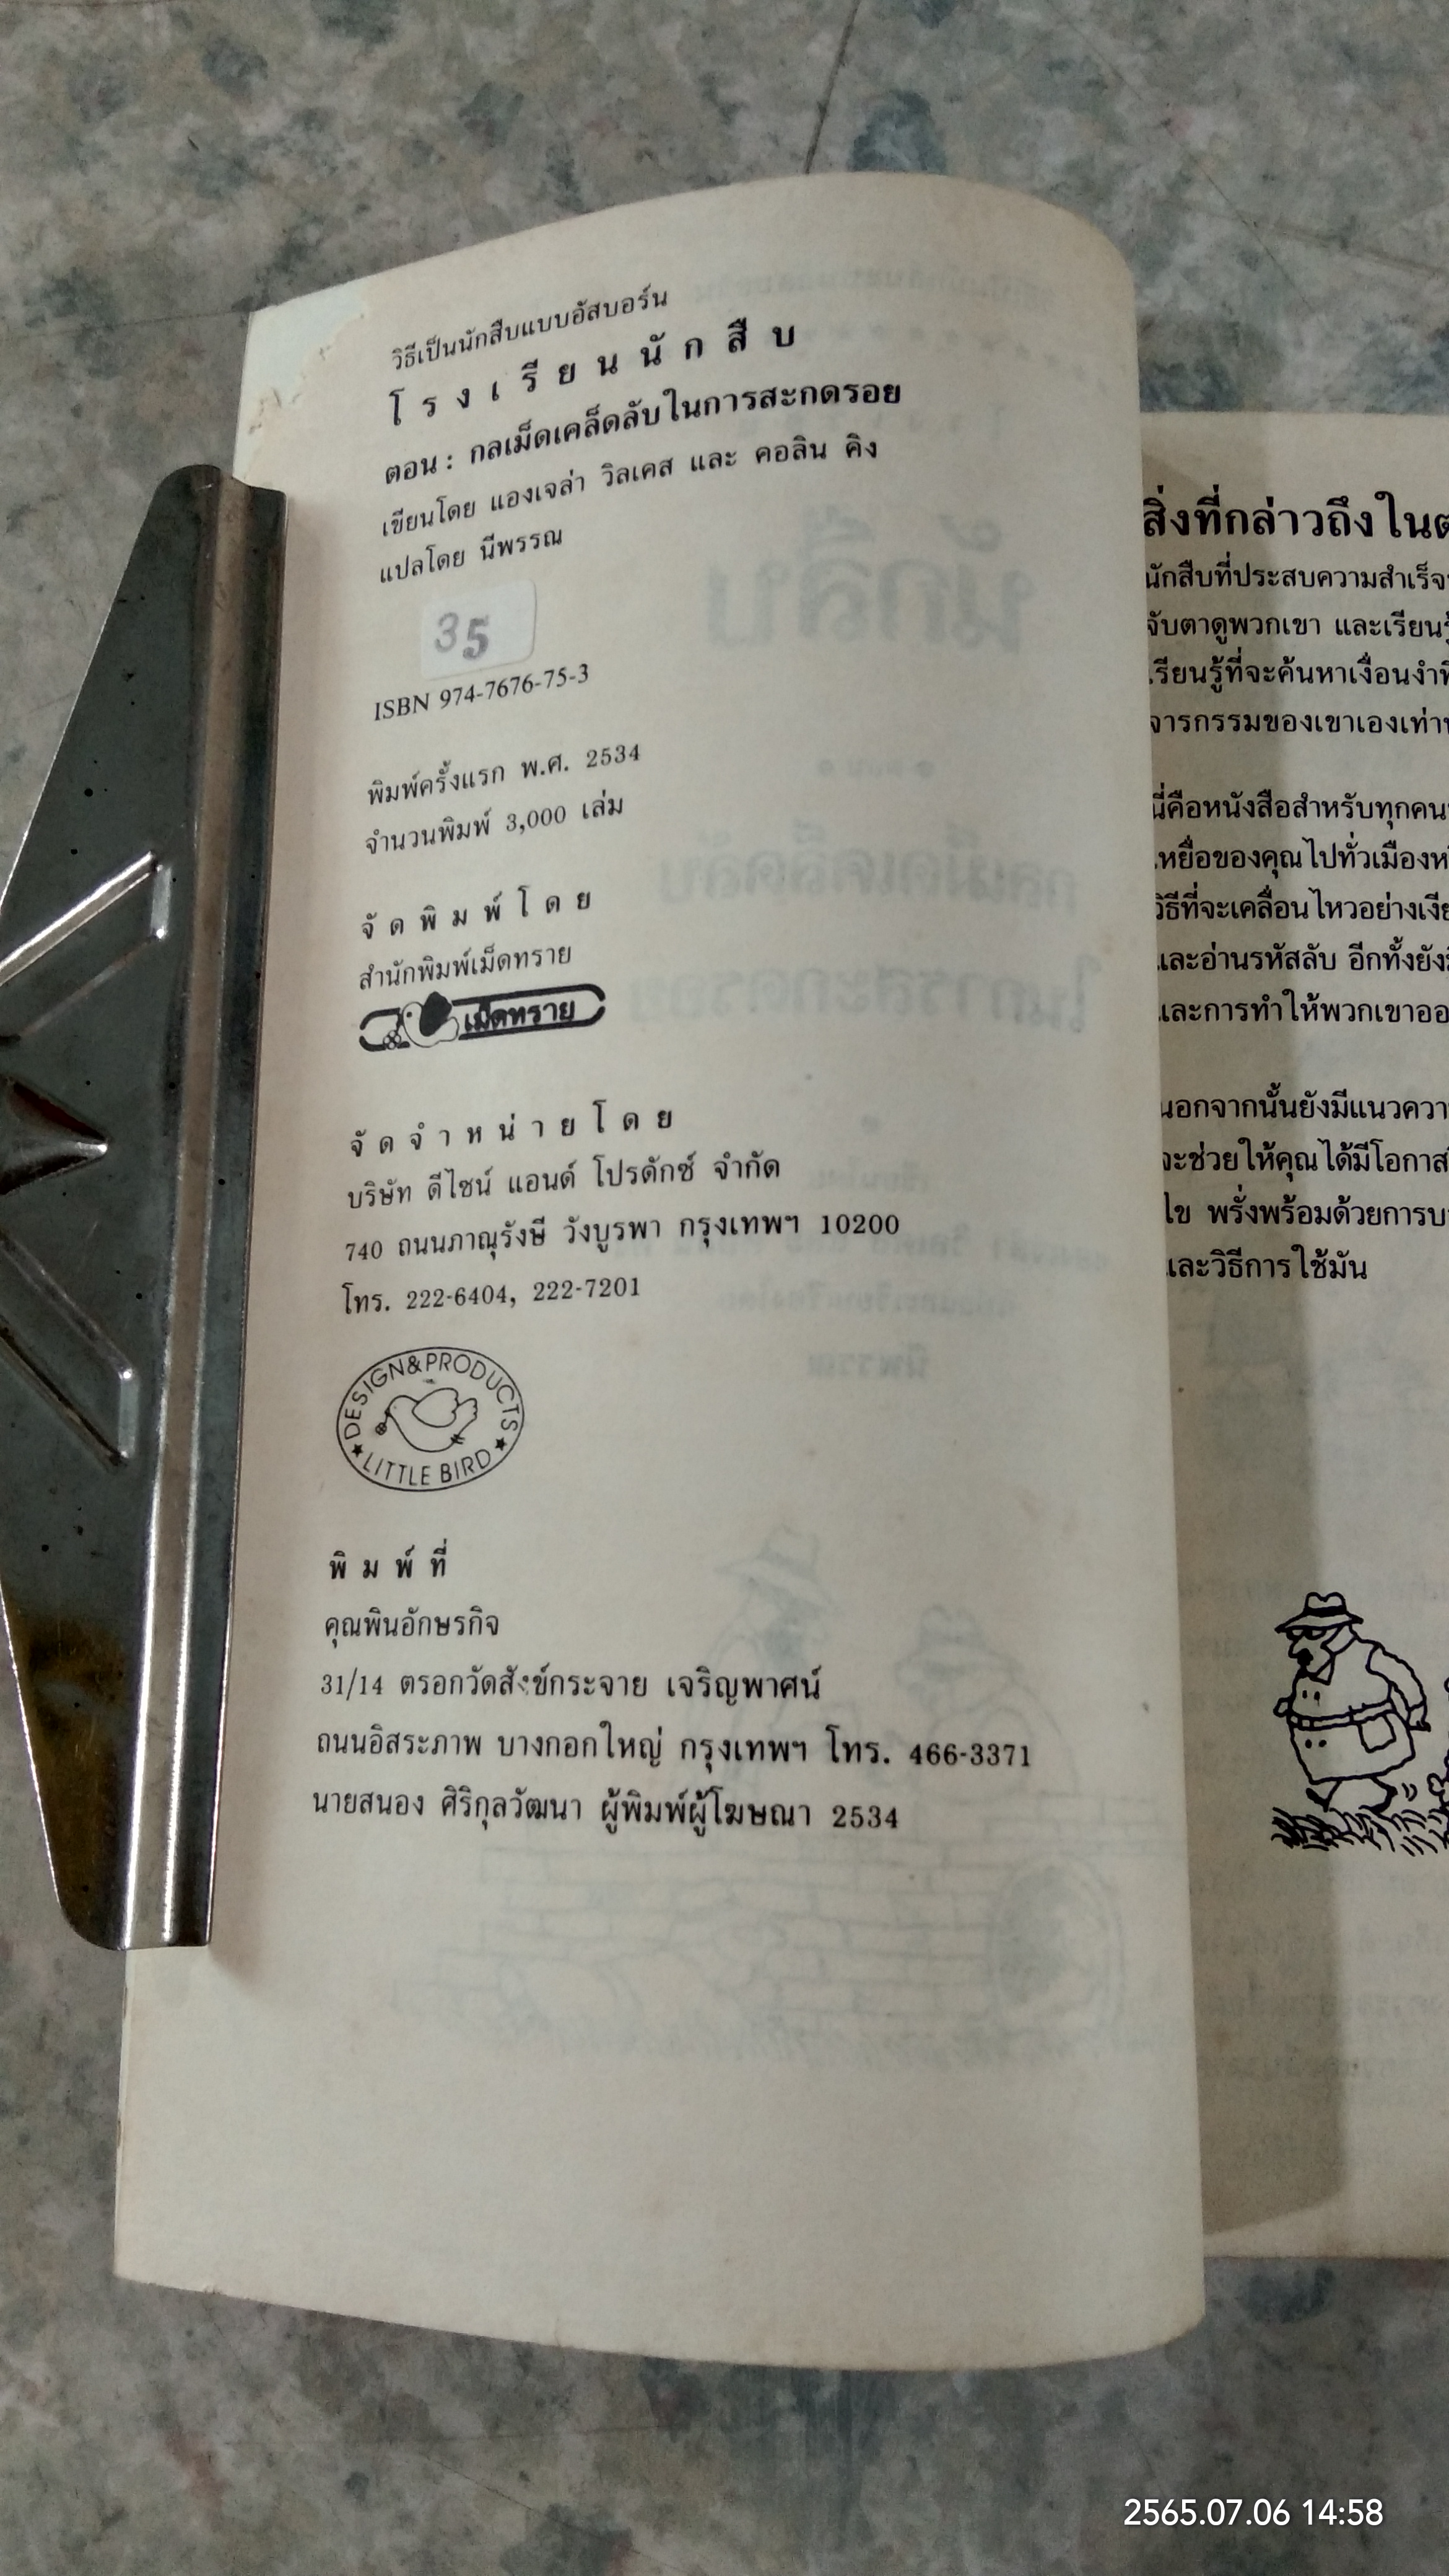 วิธีเป็นนักสืบแบบอัสบอร์น
โ ร ง เ รี ย น นั ก สื บ
ตอน : กลเม็ดเคล็ดลับในการสะกดรอย
เขียนโดย แองเจล่า วิลเคส และ คอลิน คิง
แปลโดย นีพรรณ
35
ISBN 974-7676-75-3
พิมพ์ครั้งแรก พ.ศ. 2534
จำนวนพิมพ์ 3,000 เล่ม
จั ด พิ ม พ์ โ ด ย
สำนักพิมพ์เม็ดทราย
เม็ดทราย
จั ด จำ ห น่ า ย โ ด ย
บริษัท ดีไซน์ แอนด์ โปรดักซ์ จำกัด
740 ถนนภาณุรังษี วังบูรพา กรุงเทพฯ 10200
โทร. 222-6404, 222-7201
DESIGN&PRODUCTS
LITTLE BIRD
พิ ม พ์ ที่
คุณพินอักษรกิจ
31/14 ตรอกวัดสังข์กระจาย เจริญพาศน์
ถนนอิสระภาพ บางกอกใหญ่ กรุงเทพฯ โทร. 466-3371
นายสนอง ศิริกุลวัฒนา ผู้พิมพ์ผู้โฆษณา 2534
สิ่งที่กล่าวถึงในต
นักสืบที่ประสบความสำเร็จ
จับตาดูพวกเขา และเรียนรู้
เรียนรู้ที่จะค้นหาเงื่อนงำที่
จารกรรมของเขาเองเท่า
นี่คือหนังสือสำหรับทุกคน
เหยื่อของคุณไปทั่วเมือง
วิธีที่จะเคลื่อนไหวอย่างเงีย
และอ่านรหัสลับ อีกทั้งยัง
และการทำให้พวกเขาออ
นอกจากนั้นยังมีแนวควา
จะช่วยให้คุณได้มีโอกาส
ไข พรั่งพร้อมด้วยการบ
และวิธีการใช้มัน
2565.07.06 14:58